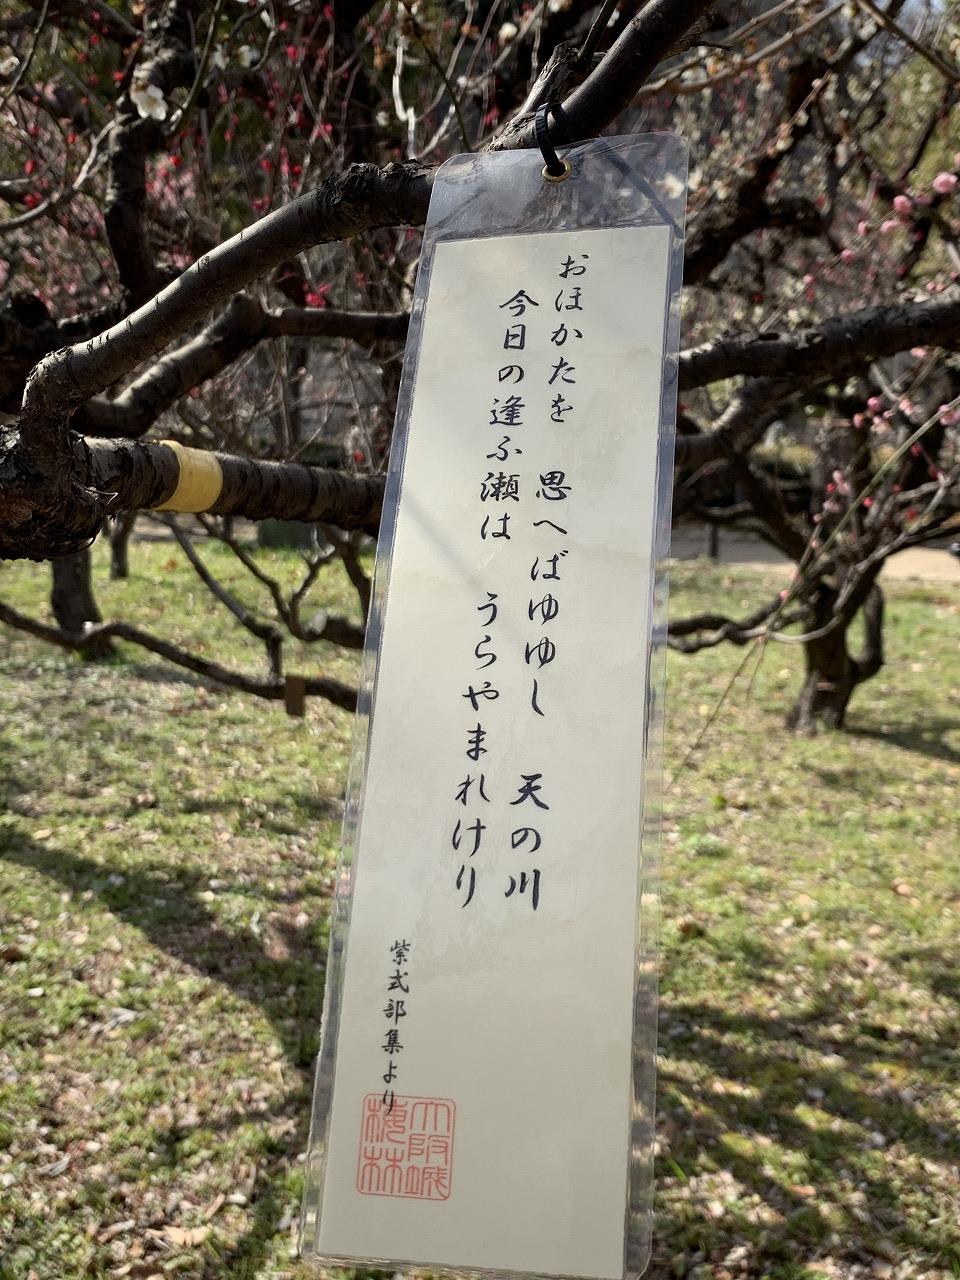 おほかたを　思へばゆゆし　天の川
今日の逢ふ瀬は　うらやまれけり
紫式部集より
大阪城
梅林